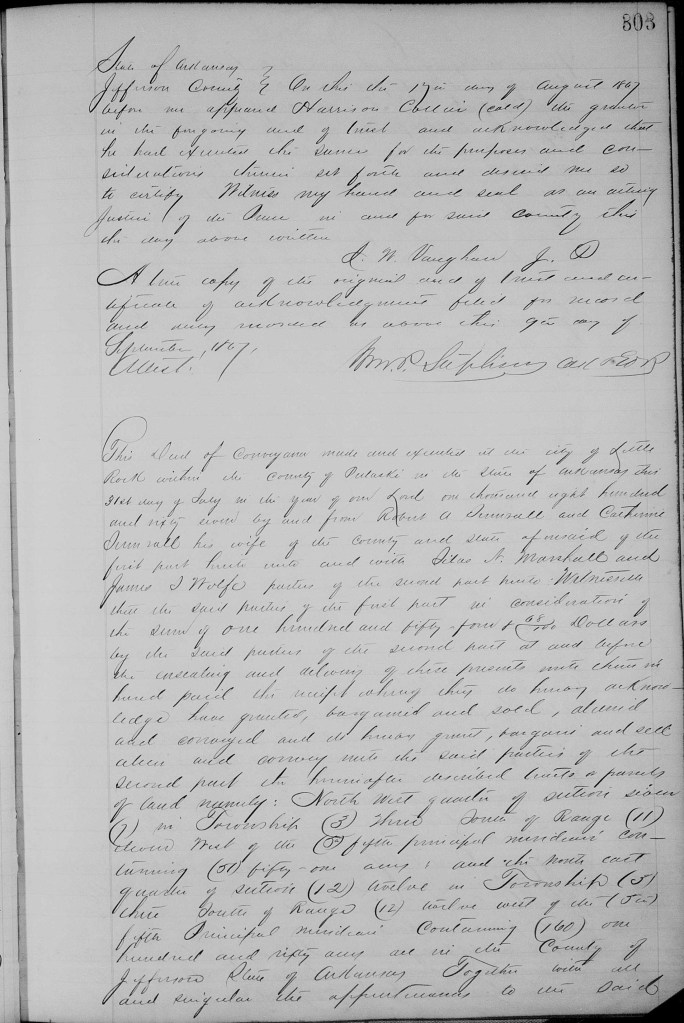 303
State of Arkansas
Jefferson County } On this the 17th day of August 1867
before me appeared Harrison (cold) the grantor
in the forgoing deed of trust and acknowledged that
he had executed the same for the purposes and con-
siderations therein set forth and desired me so
to certify Witness my hand and seal as an acting
Justice of the Peace in and for said county this
the day above written
J. W. Vaughan J. P
A true copy of the original deed of trust and cer-
tificate of acknowledgment filed for record
and duly recorded as above this 9th day of
September, 1867.
Attest. Wm. P. Stephens
This Deed of Conveyance made and executed at the city of Little
Rock within the county of Pulaski in the State of Arkansas this
31st day of July in the year of our Lord one thousand eight hundred
and sixty seven by and from Robert A and Catherine
his wife of the county and state aforesaid of the
first part hereto unto and with Silas N. Marshall and
James J Wolfe parties of the second part hereto Witnesseth
that the said parties of the first part in consideration of
the sum of one hundred and fifty-four & 68/100 Dollars
by the said parties of the second part at and before
the ensealing and delivery of these presents unto them in
hand paid the receipt whereof they do hereby acknow-
ledge have granted, bargained and sold, aliened
and conveyed and do hereby grant, bargain and sell
alien and convey unto the said parties of the
second part the hereinafter described tracts or parcels
of land namely: North West quarter of section seven
(7) in Township (3) three South of Range (11)
eleven West of the (5) fifth principal meridian con-
taining (51) fifty-one acres & and the North east
quarter of section (12) twelve in Township (3)
three South of Range (12) twelve west of the (5th)
fifth Principal meridian Containing (160) one
hundred and sixty acres all in the County of
Jefferson State of Arkansas Together with all
and singular the appurtenances to the said